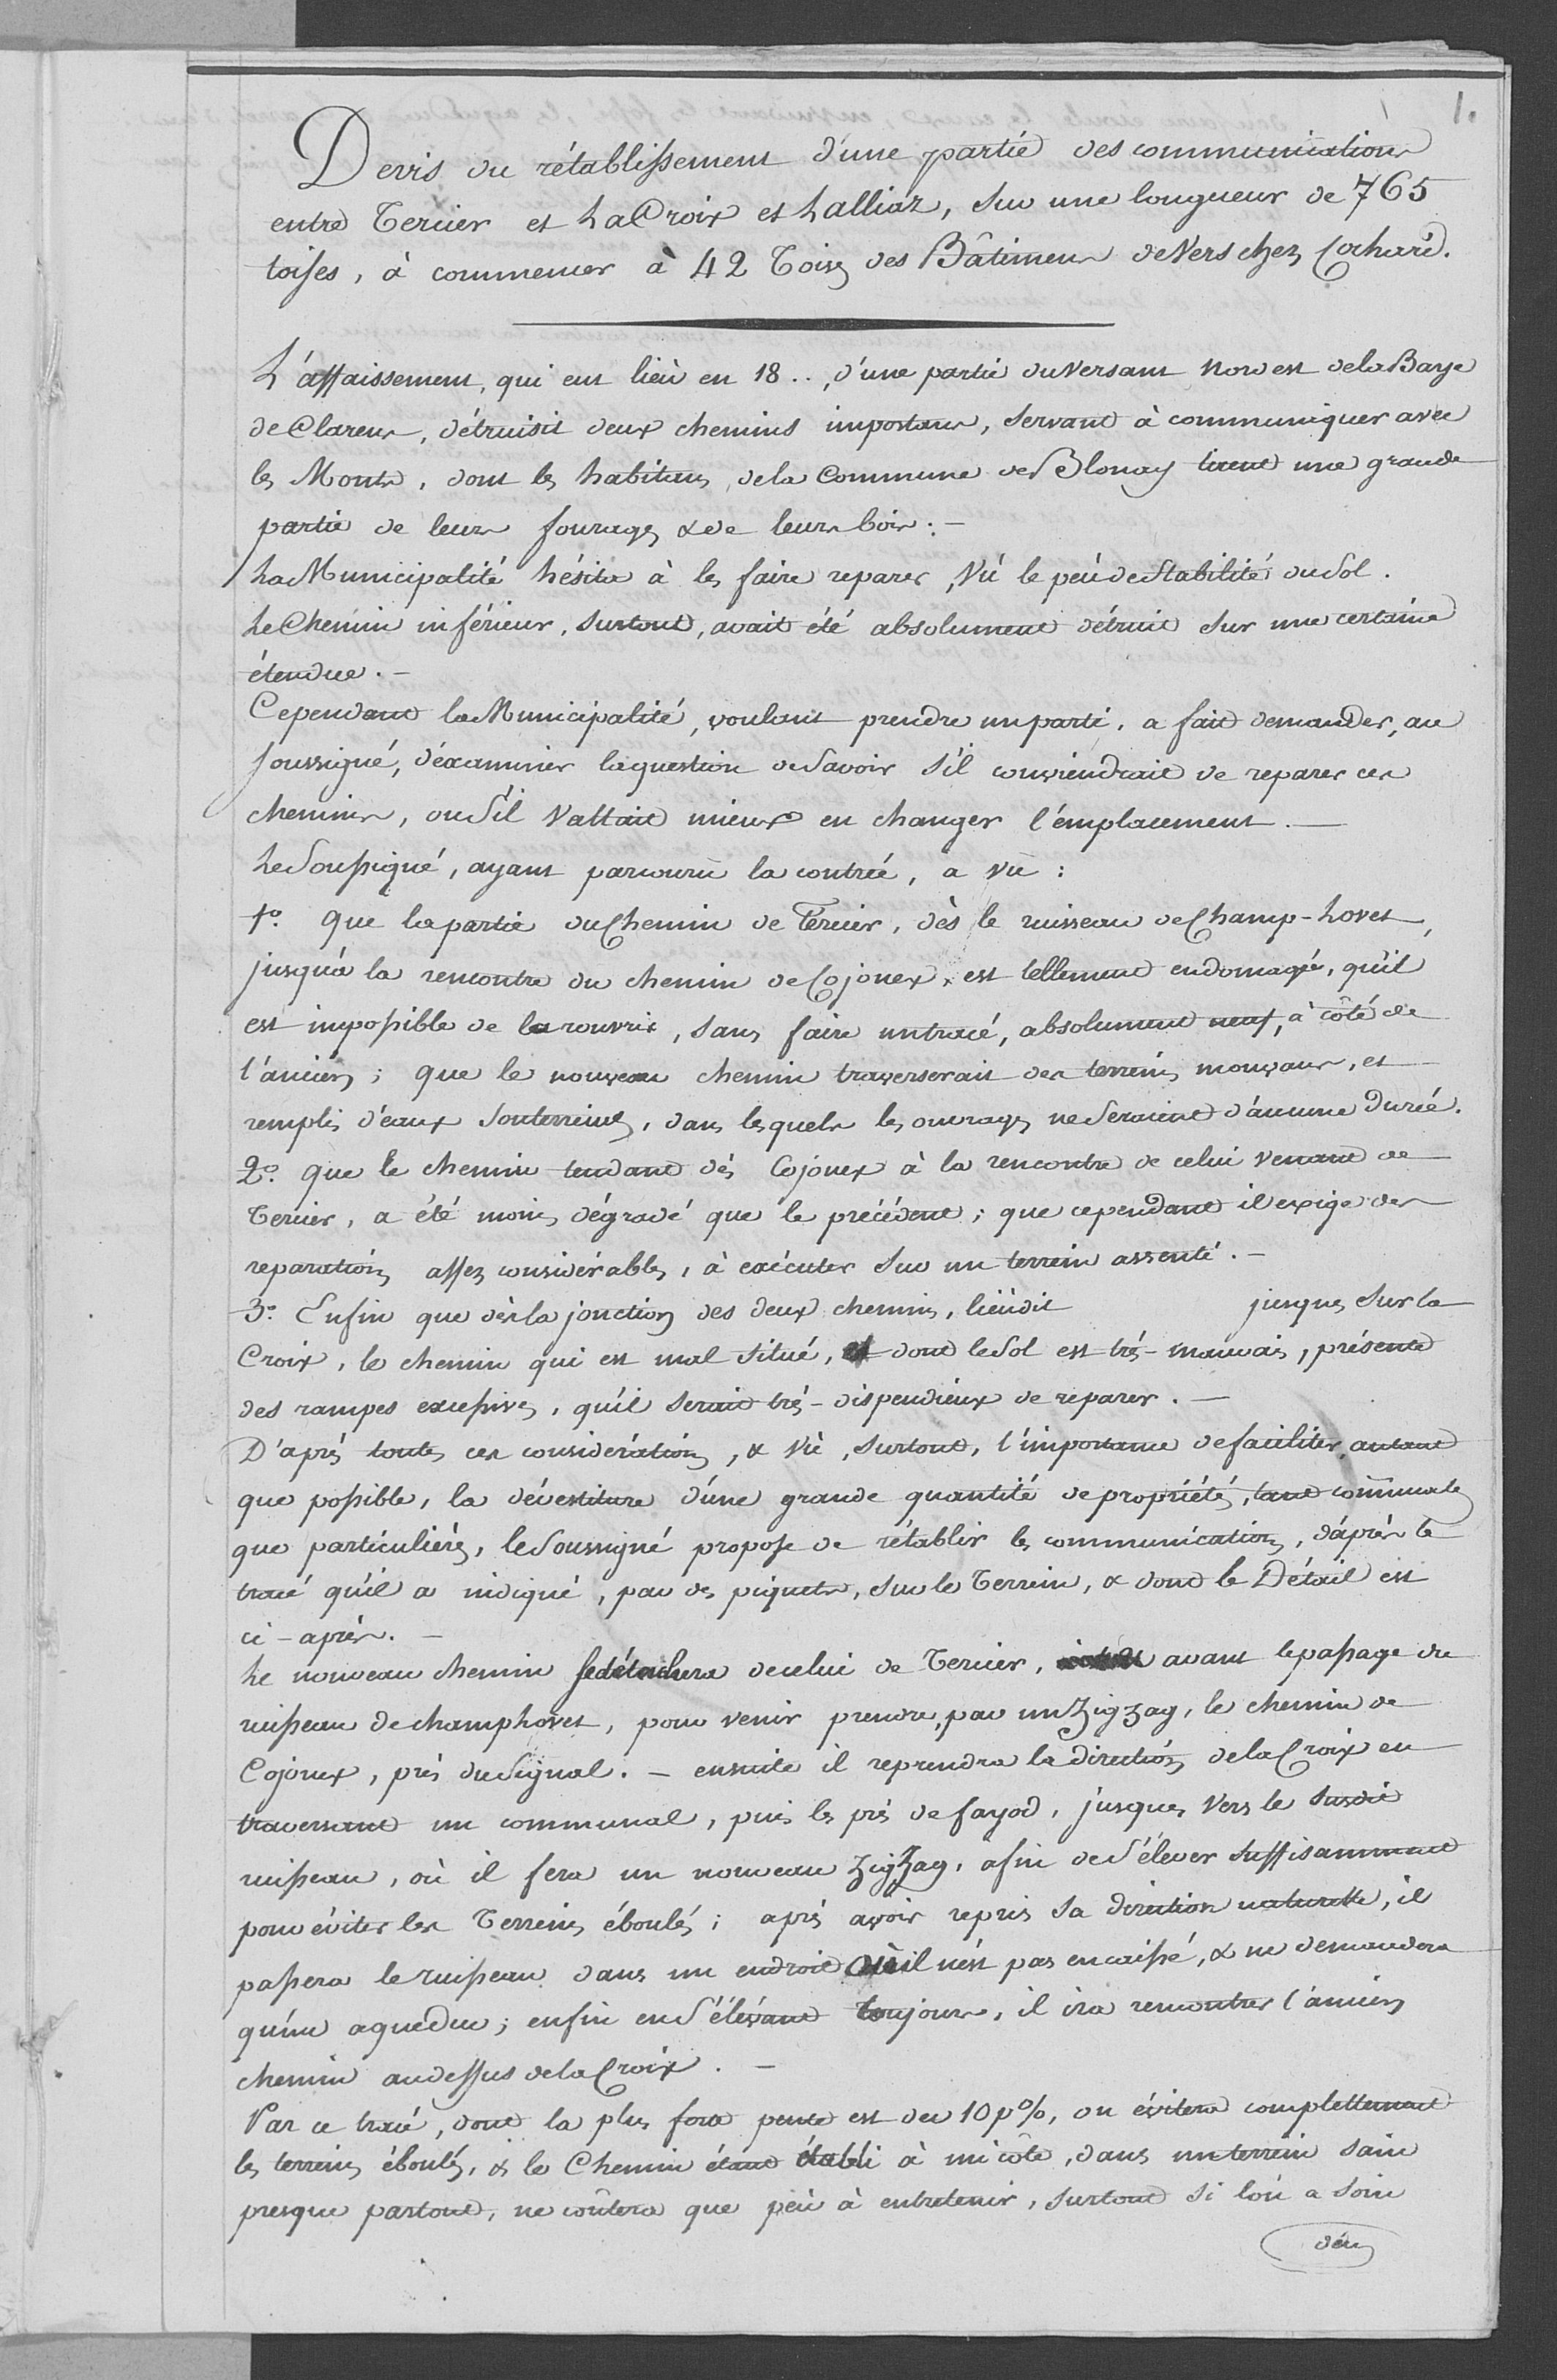 1.
Devis du rétablissement d'une partie des communications
entre Tercier et La Croix et Lalliaz, sur une longueur de 765
toises, à commencer à 42 Toises des Bâtimens de Vers chez Cochard.
L'affaissement, qui eut lieu en 18.., d'une partie du versant nord est de la Baye
de Clarens, détruisit deux chemins importans, servant à communiquer avec
les Monts, dont les habitans, de la Commune de Blonay tirent une grande
partie de leurs fourages & de leurs bois. —
La Municipalité hésita à les faire reparer, vû le peu de stabilité du sol.
Le Chemin inférieur, surtout, avait été absolument détruit sur une certaine
étendue. —
Cependant la Municipalité, voulant prendre un parti, a fait demander, au
soussigné, d'éxaminer la question de savoir s'il conviendrait de reparer ces
chemins, ou s'il vallait mieux en changer l'emplacement. —
Le Soussigné, ayant parcouru la contrée, a vû :
1.° Que la partie du Chemin de Tercier, dès le ruisseau de Champ-hovet,
jusqu'à la rencontre du chemin de Cojonex, est tellement endomagée, qu'il
est impossible de la rouvrir, sans faire un tracé, absolument neuf, à côté de
l'ancien ; que le nouveau chemin traverserait des terreins mouvans, et
remplis d'eaux souterreines, dans lesquels les ouvrages ne seraient d'aucune durée.
2.° que le chemin tendant dès Cojonex à la rencontre de celui venant de
Tercier, a été moins dégradé que le précédent ; que cependant il exige des
reparations assez considérables, à exécuter sur un terrein assenté. —
3.° Enfin que dès la jonction des deux chemins, lieudit jusques sur la
Croix, le chemin qui est mal situé, et dont le sol est très-mauvais, présente
des rampes excessives, qu'il serait très-dispendieux de reparer. —
D'après toutes ces considérations, & vû, surtout, l'importance de faciliter, autant
que possible, la dévestiture d'une grande quantité de propriétés, tant communales
que particulières, le Soussigné propose de rétablir les communications, d'après le
tracé qu'il a indiqué, par des piquets, sur le Terrein, & dont le Détail est
ci-après. —
Le nouveau chemin se détachera de celui de Tercier, avant le passage du
ruisseau de champhovet, pour venir prendre, par un Zigzag, le chemin de
Cojonex, près du Signal. — ensuite il reprendra la direction de la Croix en
traversant un communal, puis les prés de fayod, jusques vers le susdit
ruisseau, où il fera un nouveau zigzag, afin de s'élever suffisamment
pour éviter les Terreins éboulés ; après avoir repris sa direction naturelle, il
passera le ruisseau dans un endroit où il n'est pas encaissé, & ne demandera
qu'un aqueduc ; enfin en s'élévant toujours, il ira rencontrer l'ancien
chemin au dessus de la Croix. —
Par ce tracé, dont la plus forte pente est de 10 p%, on évitera complettement
les terreins éboulés, & le Chemin étant établi à mi côte, dans un terrein sain
presque partout, ne coûtera que peu à entretenir, surtout si l'on a soin
d'en